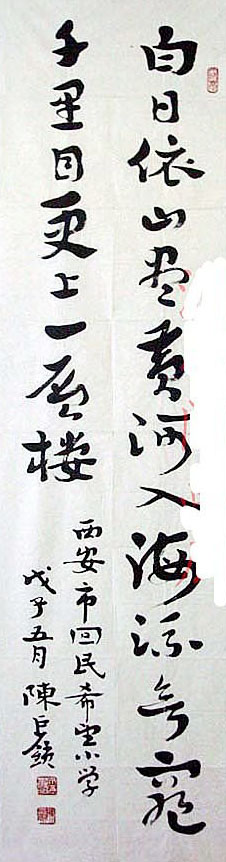 白日依山尽黄河入海流欲窮
千里目更上一層楼
西安市回民希望小学
戊子五月 陳巨鎖